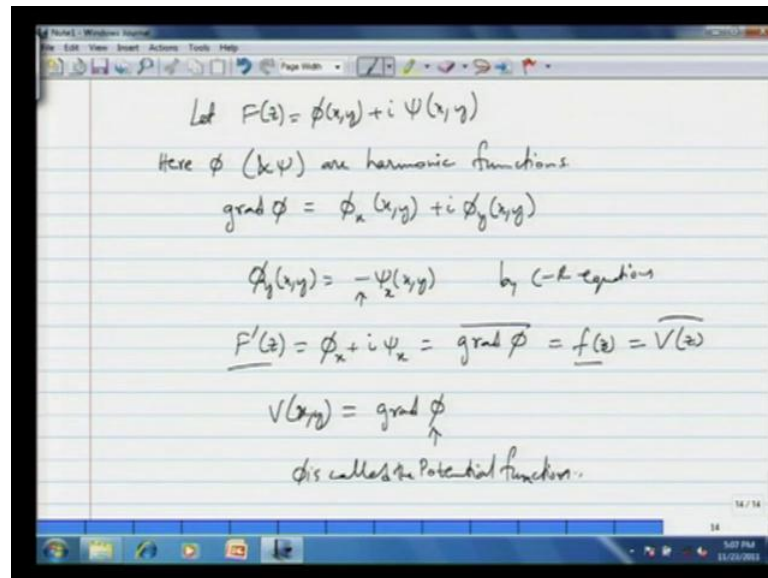 Note1 - Windows Journal
File Edit View Insert Actions Tools Help
Page Width
Let F(z) = ϕ(x,y) + i ψ(x,y)
Here ϕ (& ψ) are harmonic functions
grad ϕ = ϕₓ(x,y) + i ϕ_y(x,y)
ϕ_y(x,y) = -ψₓ(x,y) by C-R equations
F'(z) = ϕₓ + i ψₓ = \overline{grad ϕ} = f(z) = \overline{V(z)}
V(x,y) = grad ϕ
ϕ is called the Potential function.
14 / 14
14
5:07 PM
11/23/2011